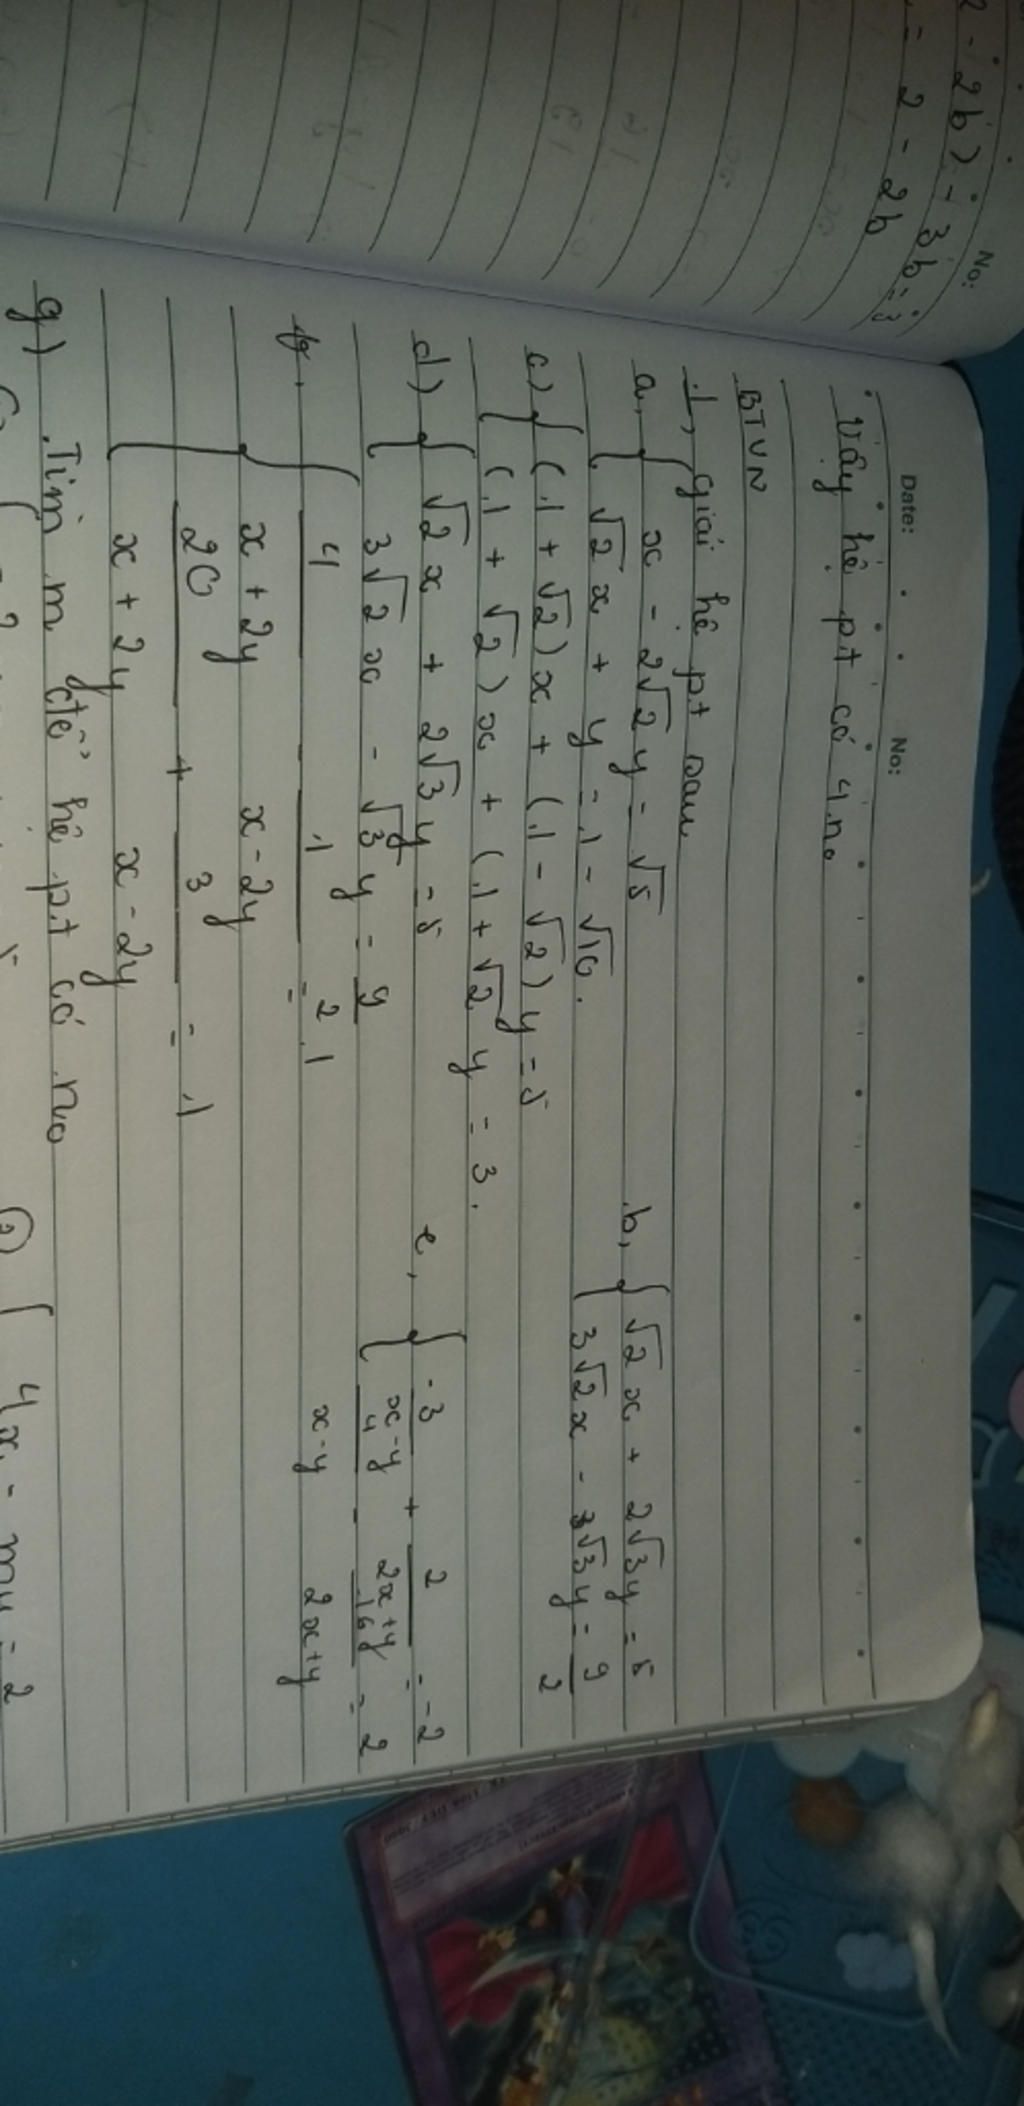 2 - 2b) - 3b = 3
= 2 - 2b
No:
Date: No:
Vậy hệ pt có 1 no
BTVN
1, giải hệ pt sau
a, { x - 2√2 y = √5
√2 x + y = 1 - √10.
b, { √2 x + 2√3 y = 5
3√2 x - 3√3 y = 9/2
c) { (1 + √2) x + (1 - √2) y = 5
(1 + √2) x + (1 + √2 y = 3.
d) { √2 x + 2√3 y = 5
3√2 x - √3 y = 9/2
e, { -3/(x - y) + 2/(2x + y) = -2
4/(x - y) - 16/(2x + y) = 2
{ 4/(x + 2y) - 1/(x - 2y) = 1
20/(x + 2y) + 3/(x - 2y) = 1
g) Tìm m để hệ pt có no
② { 4x - my = 2